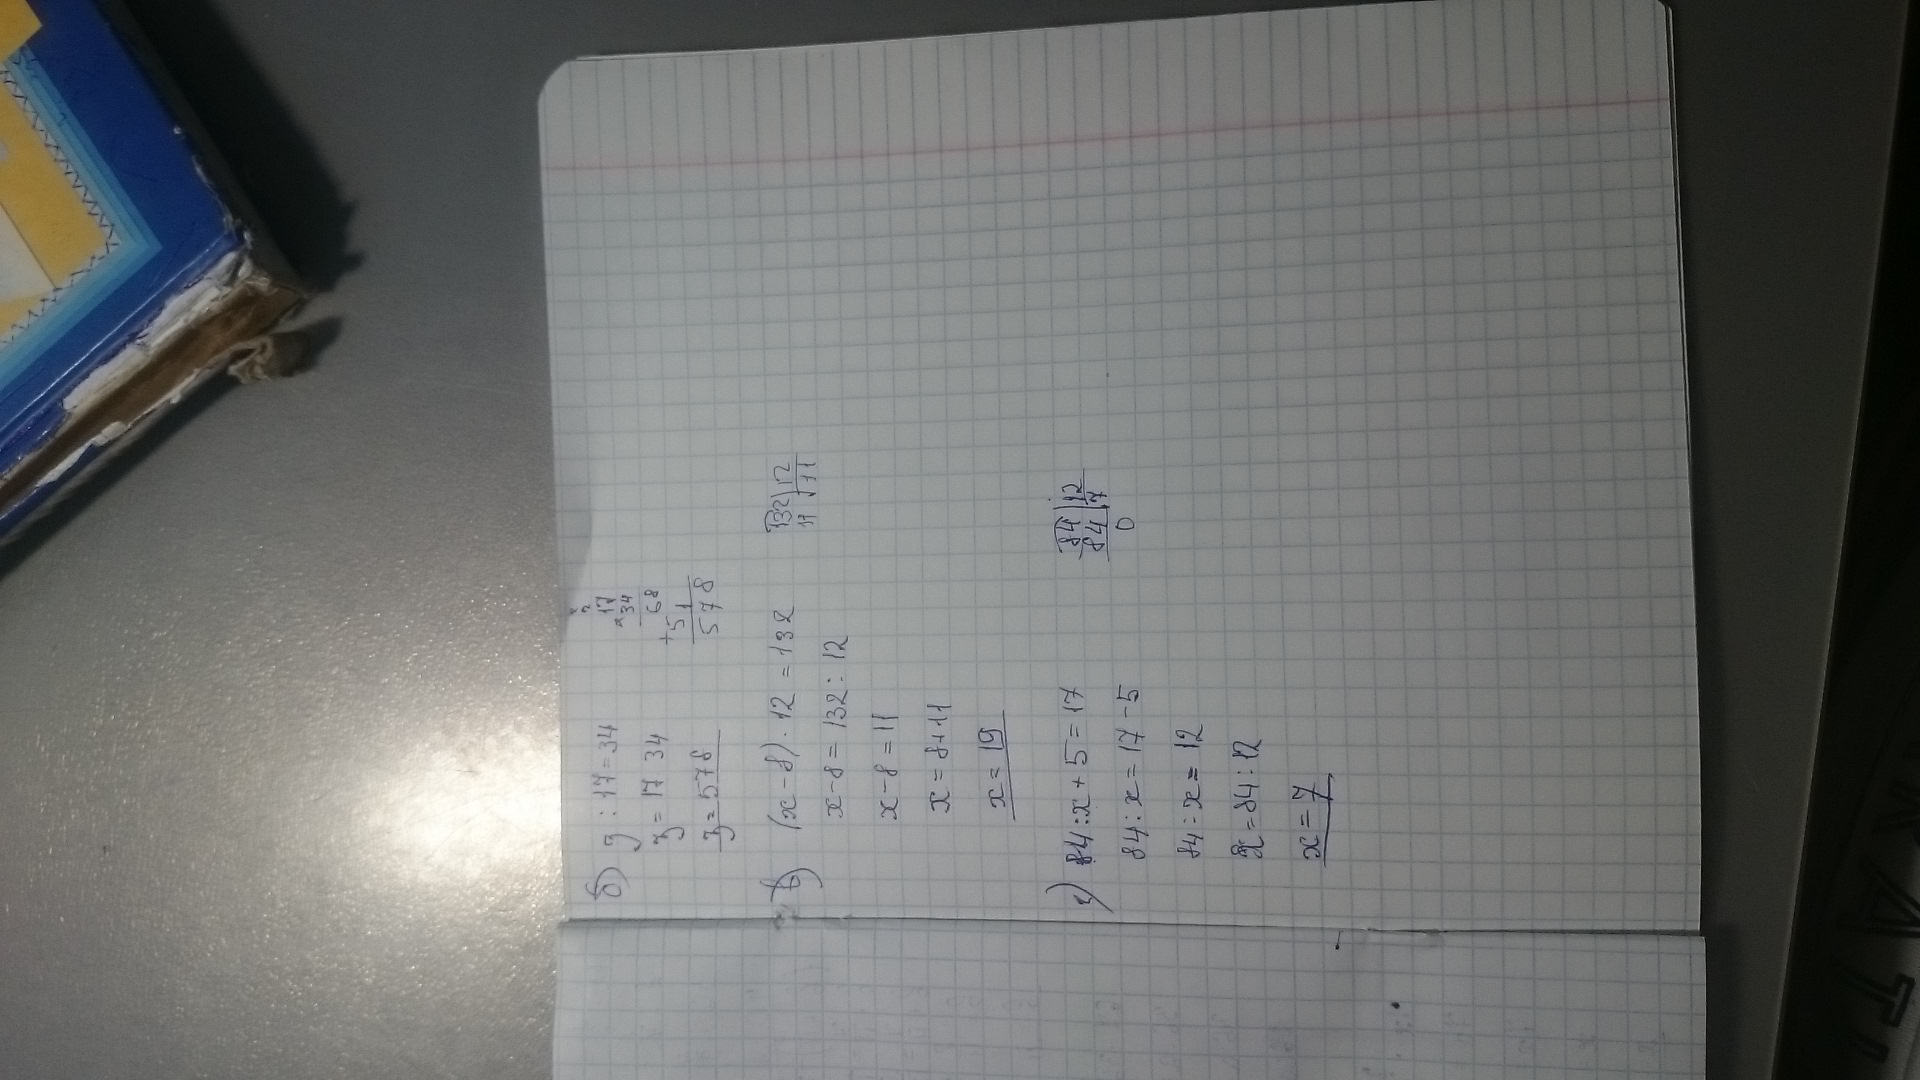 б) z : 17 = 34
z = 17 34
z = 578
2
2
17
× 34
68
+ 51
578
в) (x - 8) · 12 = 132
x - 8 = 132 : 12
x - 8 = 11
x = 8 + 11
x = 19
132 | 12
11
11
г) 84 : x + 5 = 17
84 : x = 17 - 5
84 : x = 12
x = 84 : 12
x = 7
84 | 12
84 | 7
0